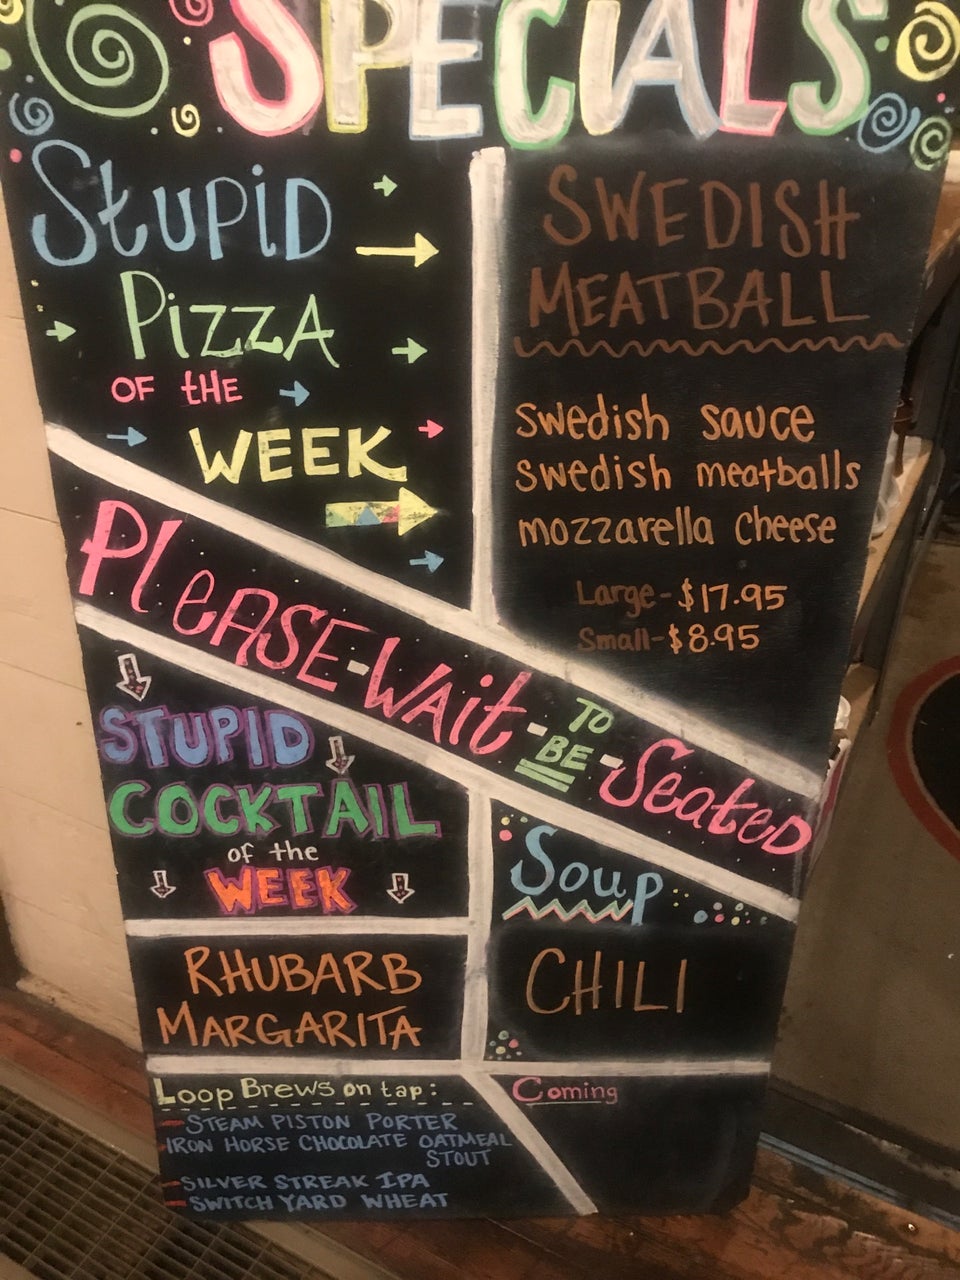 SPECIALS
StUPiD
PiZZA
OF tHE
WEEK
SWEDISH
MEATBALL
swedish sauce
swedish meatballs
mozzarella cheese
Large-$17.95
Small-$8.95
PLeASE-WAit-TO BE-SeateD
STUPID
COCKTAIL
of the
WEEK
RHUBARB
MARGARITA
Soup
CHILI
Loop Brews on tap:
-STEAM PISTON PORTER
-IRON HORSE CHOCOLATE OATMEAL
STOUT
-SILVER STREAK IPA
-SWITCH YARD WHEAT
Coming